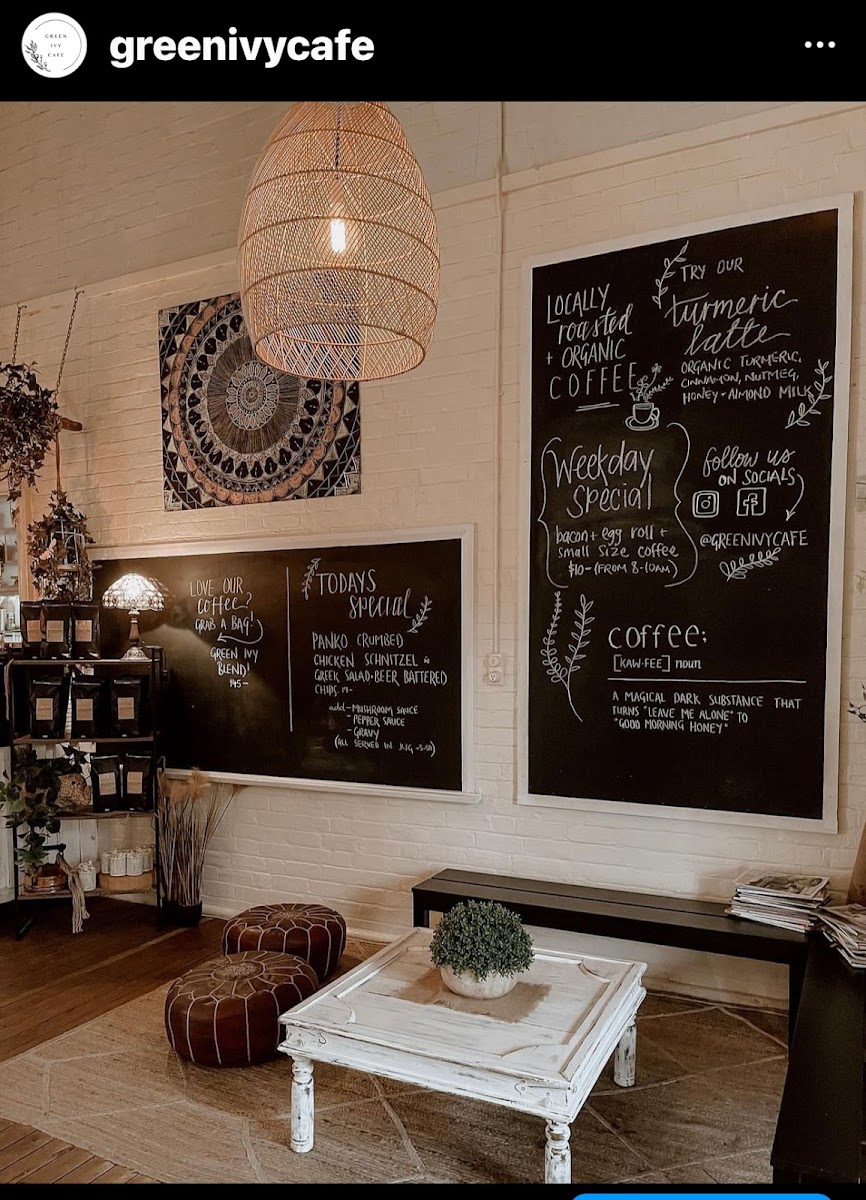 GREEN
IVY
CAFE
greenivycafe
LOVE OUR
COFFEE?
GRAB A BAG!
GREEN IVY
BLEND!
TODAYS
special
PANKO CRUMBED
CHICKEN SCHNITZEL &
GREEK SALAD + BEER BATTERED
CHIPS. 19-
add - MUSHROOM SAUCE
- PEPPER SAUCE
- GRAVY
(ALL SERVED IN JUG,
LOCALLY
roasted
+ ORGANIC
COFFEE
TRY OUR
turmeric
latte
ORGANIC TURMERIC,
CINNAMON, NUTMEG,
HONEY + ALMOND MILK
Weekday
Special
bacon + egg roll +
small size coffee
$10- (FROM 8-10AM)
follow us
ON SOCIALS
@GREENIVYCAFE
coffee;
[KAW-FEE] noun
A MAGICAL DARK SUBSTANCE THAT
TURNS "LEAVE ME ALONE" TO
"GOOD MORNING HONEY"